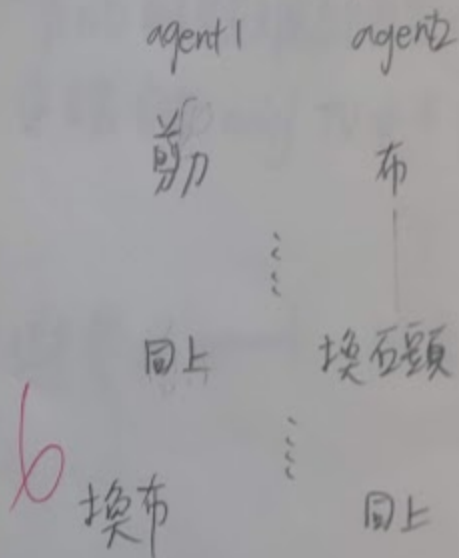 agent1 agent2
剪刀 布
同上 換石頭
6
換布 同上